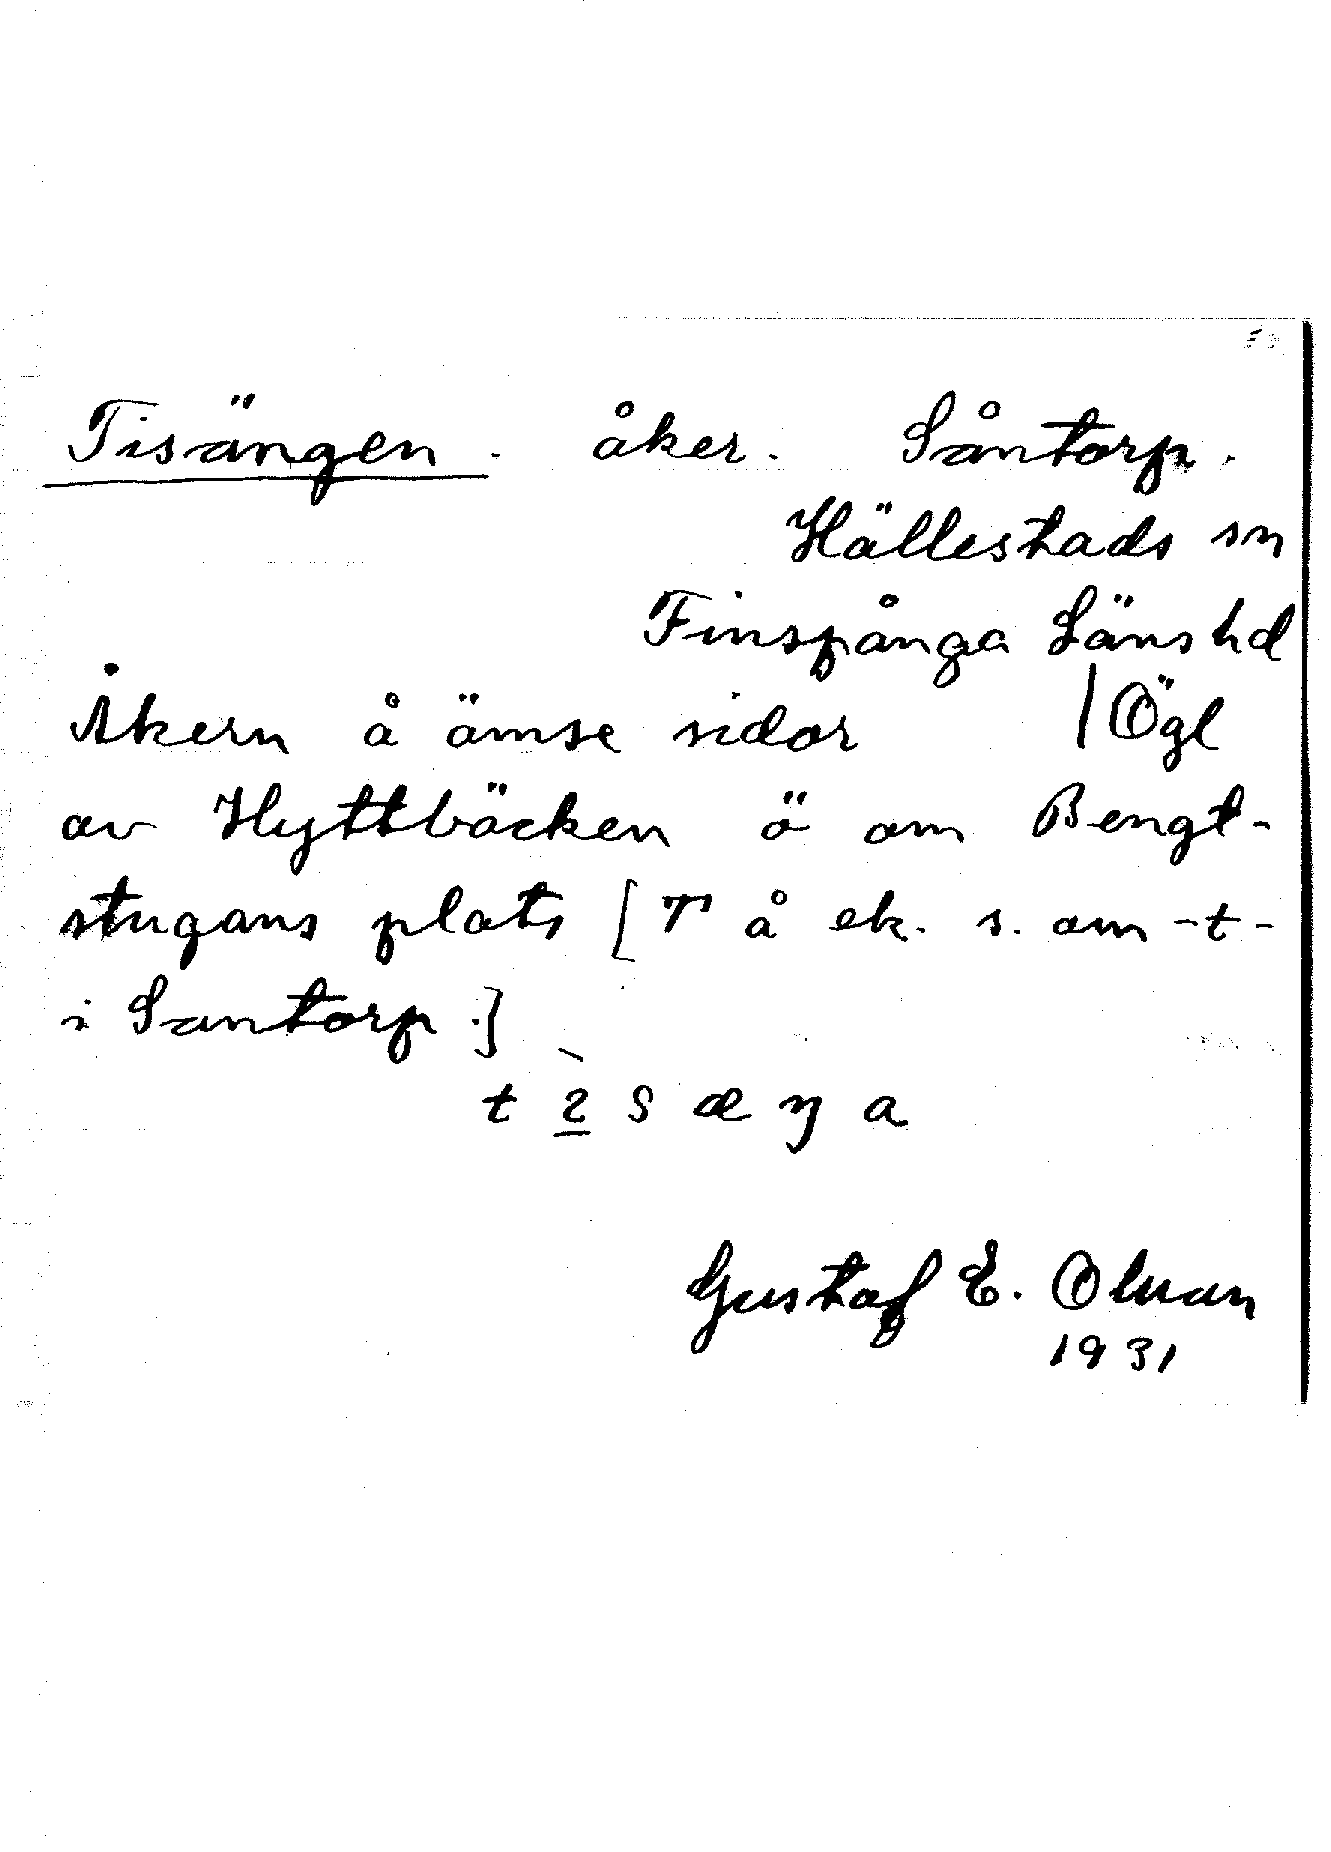 Tisängen. åker. Såntorp.
Hällestads sn
Finspånga Länshd
Åkern å ömse sidor / Ögl
av Hyttbäcken ö om Bengt-
stugans plats [T å ek. s. om -t-
i Santorp.]
t ì s æ ŋ a
Gustaf E. Olman
1931